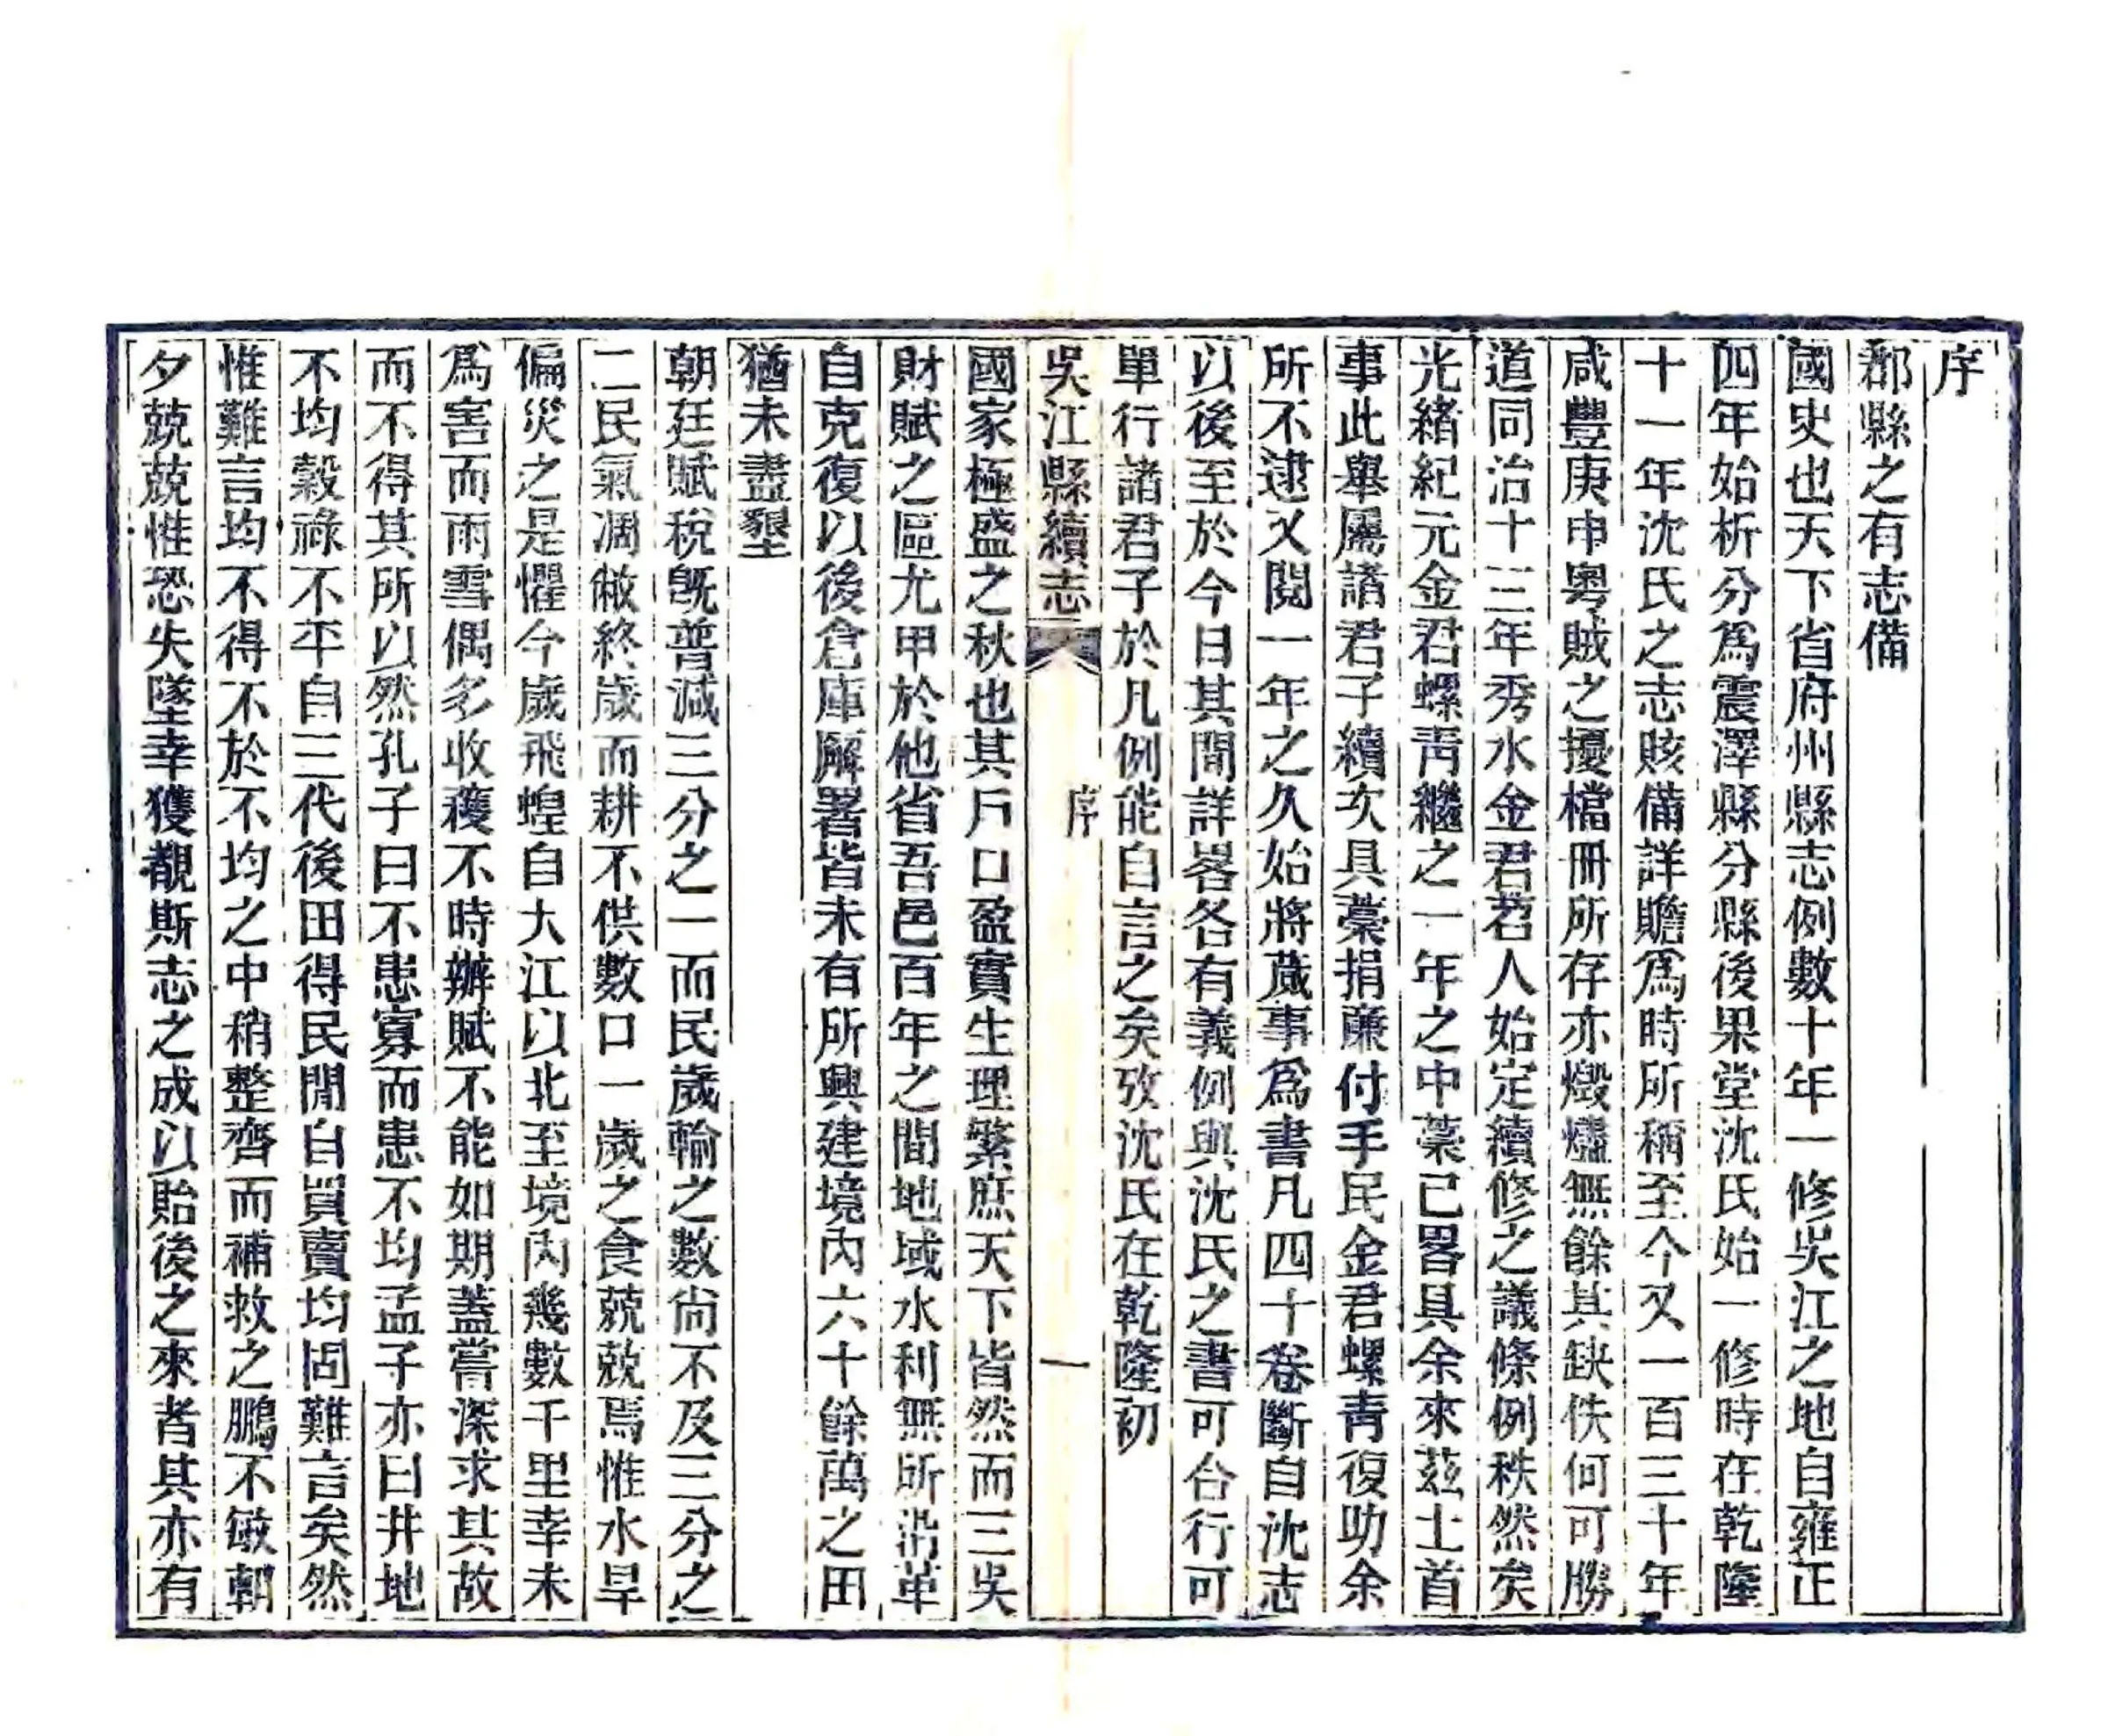 序
郡縣之有志備
國史也天下省府州縣志例數十年一修吳江之地自雍正
四年始析分爲震澤縣分縣後果堂沈氏始一修時在乾隆
十一年沈氏之志賅備詳贍爲時所稱至今又一百三十年
咸豐庚申粵賊之擾檔冊所存亦燬燼無餘其缺佚何可勝
道同治十三年秀水金君苕人始定續修之議條例秩然矣
光緒紀元金君螺青繼之一年之中藁已畧具余來茲土首
事此舉屬諸君子續次具藁捐亷付手民金君螺青復助余
所不逮又閱一年之久始將蕆事爲書凡四十卷斷自沈志
以後至於今日其閒詳畧各有義例與沈氏之書可合行可
單行諸君子於凡例能自言之矣攷沈氏在乾隆初
吳江縣續志 序 一
國家極盛之秋也其戶口盈實生理繁庶天下皆然而三吳
財賦之區尤甲於他省吾邑百年之閒地域水利無所沿革
自克復以後倉庫廨署皆未有所興建境內六十餘萬之田
猶未盡墾
朝廷賦稅旣普減三分之一而民歲輸之數尙不及三分之
二民氣凋敝終歲而耕不供數口一歲之食兢兢焉惟水旱
偏災之是懼今歲飛蝗自大江以北至境內幾數千里幸未
爲害而雨雪偶多收穫不時辦賦不能如期蓋嘗深求其故
而不得其所以然孔子曰不患寡而患不均孟子亦曰井地
不均穀祿不平自三代後田得民閒自買賣均固難言矣然
惟難言均不得不於不均之中稍整齊而補救之鵬不敏朝
夕兢兢惟恐失墜幸獲覩斯志之成以貽後之來者其亦有